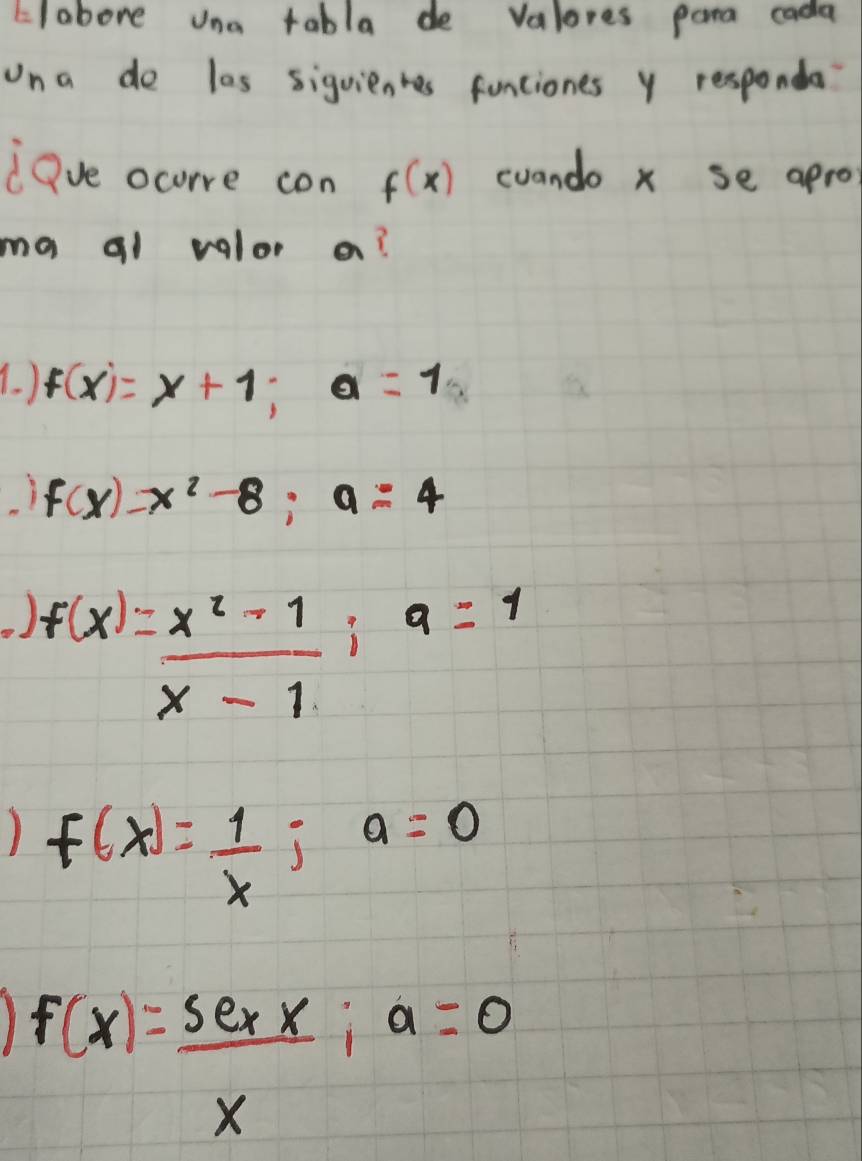 Elabore una tabla de valores para cada
una de las siguientes funciones y responda
¿Que ocurre con f(x) cuando x se apro
ma al valor a?
1.) f(x) = x + 1; a = 1
.) f(x) = x² - 8; a = 4
.) f(x) = x² - 1 ; a = 1
x - 1
) f(x) = 1 ; a = 0
x
) f(x) = sex x ; a = 0
x